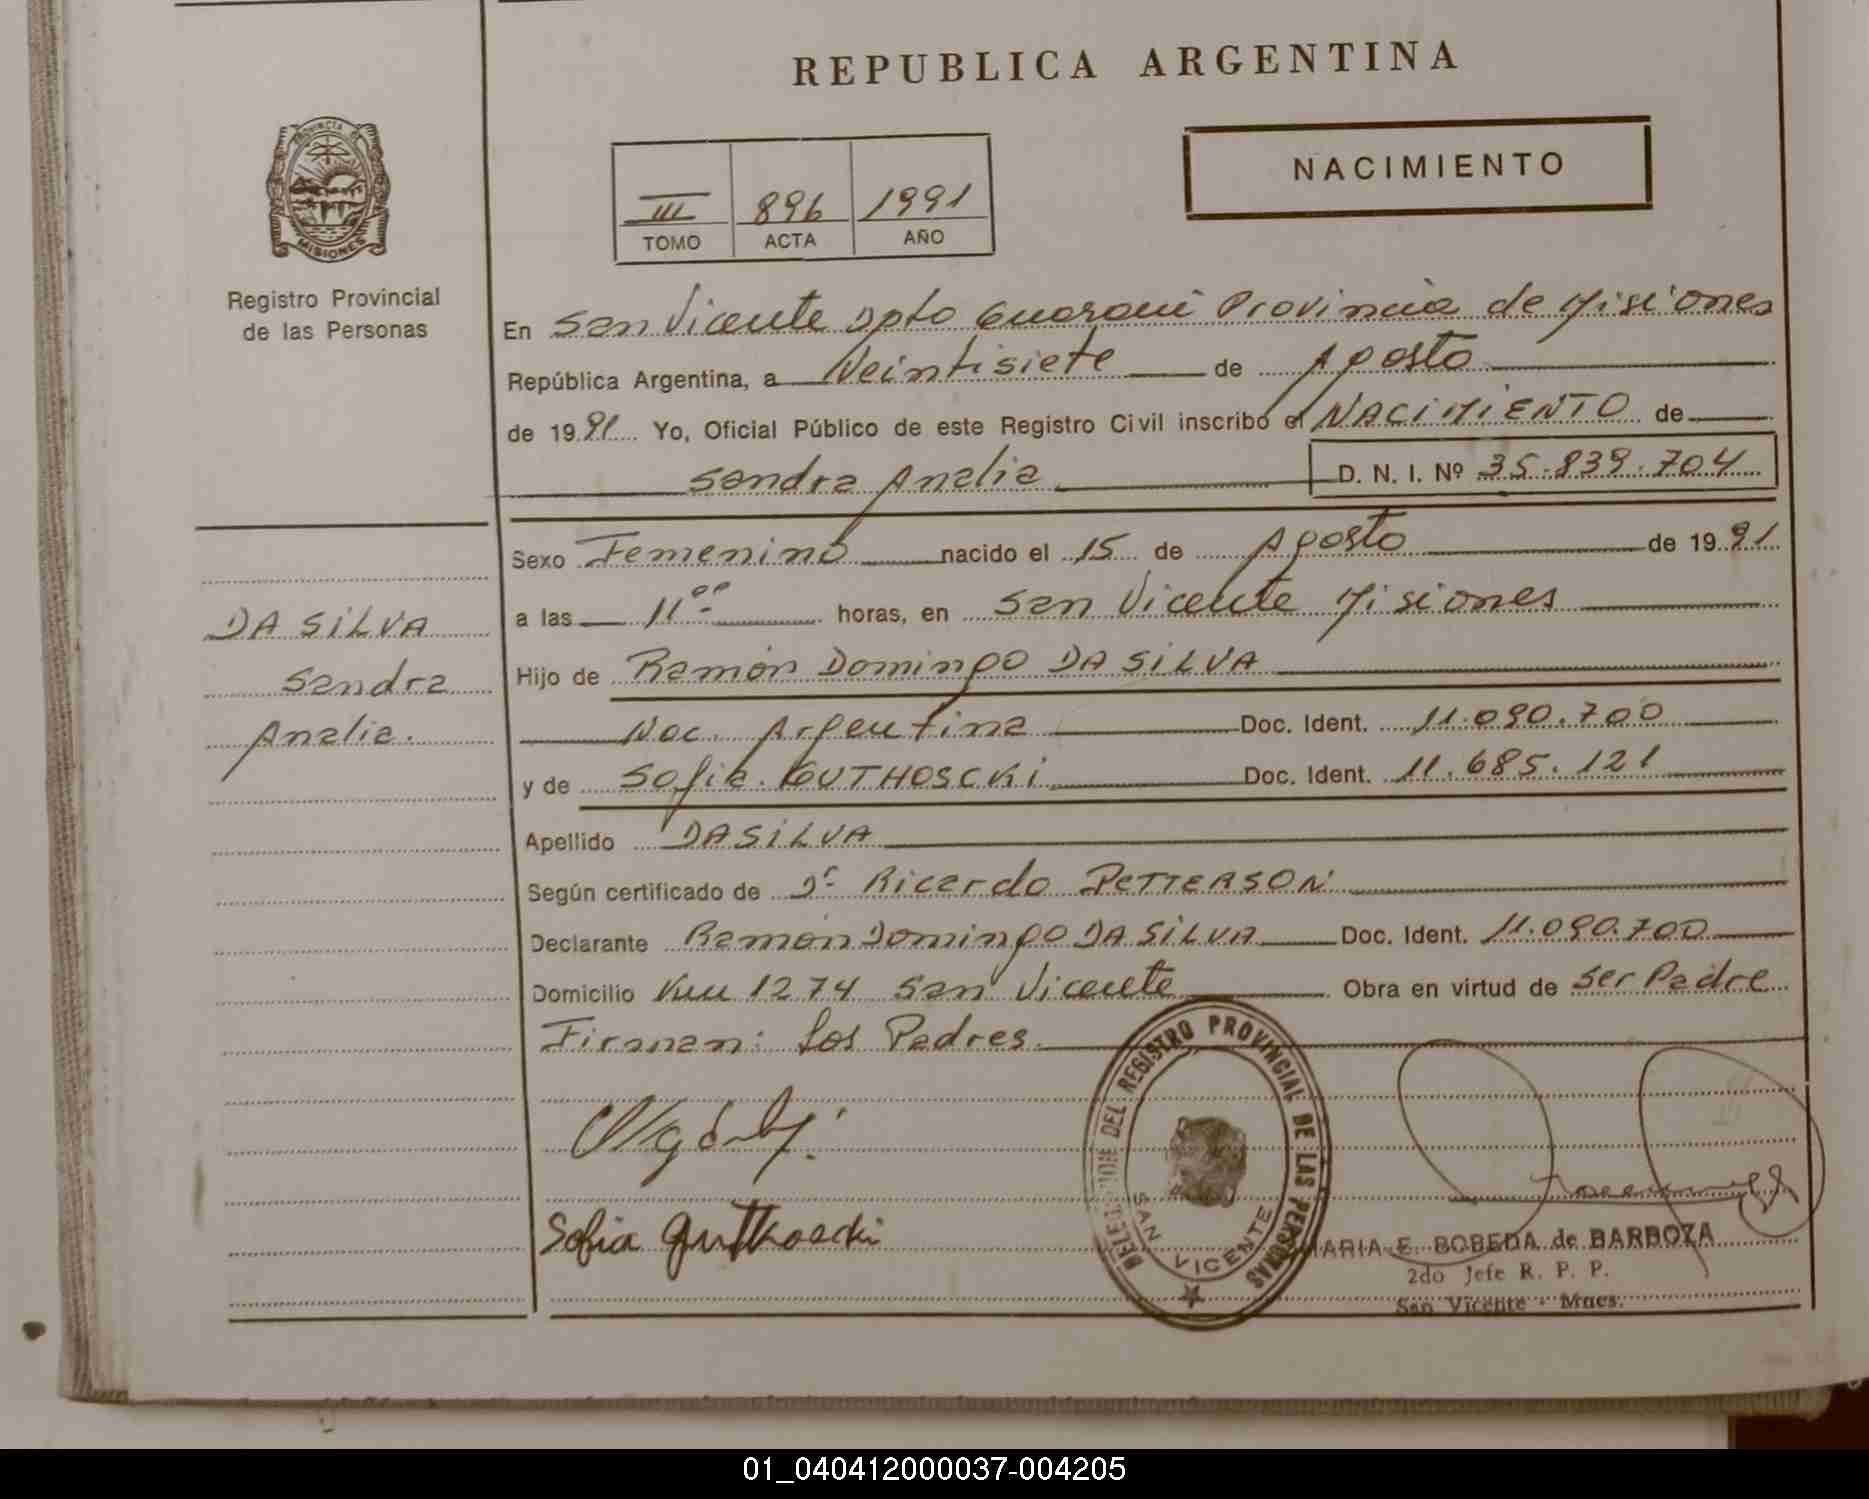 REPUBLICA ARGENTINA
NACIMIENTO
III 896 1991
TOMO ACTA AÑO
PROVINCIA DE
MISIONES
Registro Provincial
de las Personas
En San Vicente Dpto Guarani Provincia de Misiones
República Argentina, a Veintisiete de Agosto
de 1991 Yo, Oficial Público de este Registro Civil inscribo el NACIMIENTO de
Sandra Analia D. N. I. Nº 35.839.704
Sexo Femenino nacido el 15 de Agosto de 1991
a las 11ºº horas, en San Vicente Misiones
Hijo de Ramón Domingo DA SILVA
Nac. Argentina Doc. Ident. 11.090.700
y de Sofia GUTHOSCKI Doc. Ident. 11.685.121
Apellido DA SILVA
Según certificado de Dr Ricardo PETTERSON
Declarante Ramón Domingo DA SILVA Doc. Ident. 11.090.700
Domicilio Km 1274 San Vicente Obra en virtud de Ser Padre
Firman: Los Padres.
DA SILVA
Sandra
Analia.
Sofia Guthoscki
DELEGACION DEL REGISTRO PROVINCIAL DE LAS PERSONAS
SAN VICENTE
MARIA E. BOBEDA de BARBOZA
2do Jefe R. P. P.
San Vicente - Mnes.
01_040412000037-004205